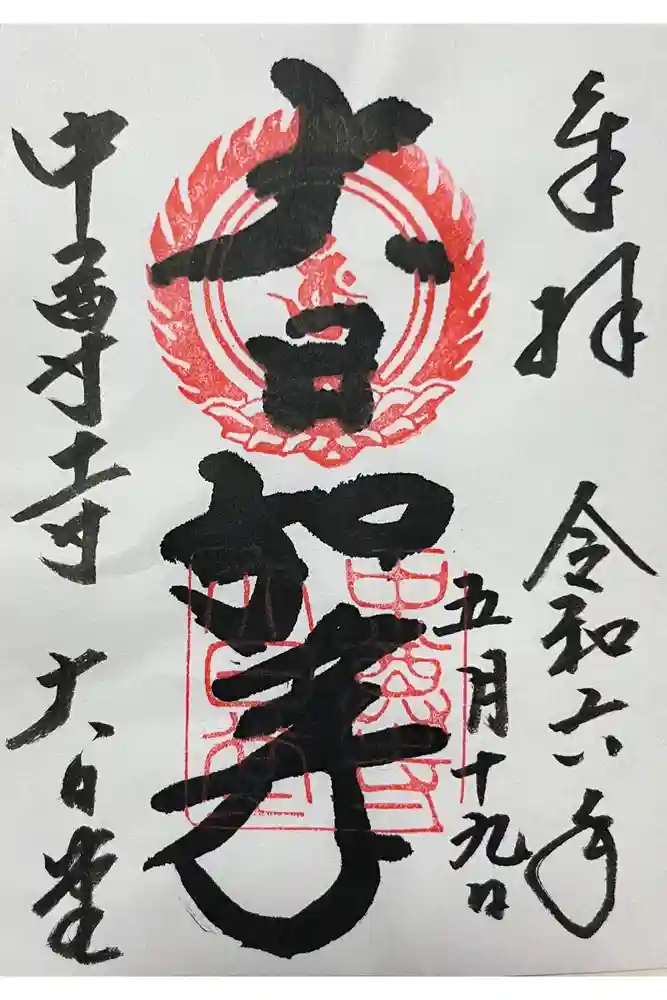 奉拝
令和六年
五月十九日
大日如来
中尊寺
大日堂